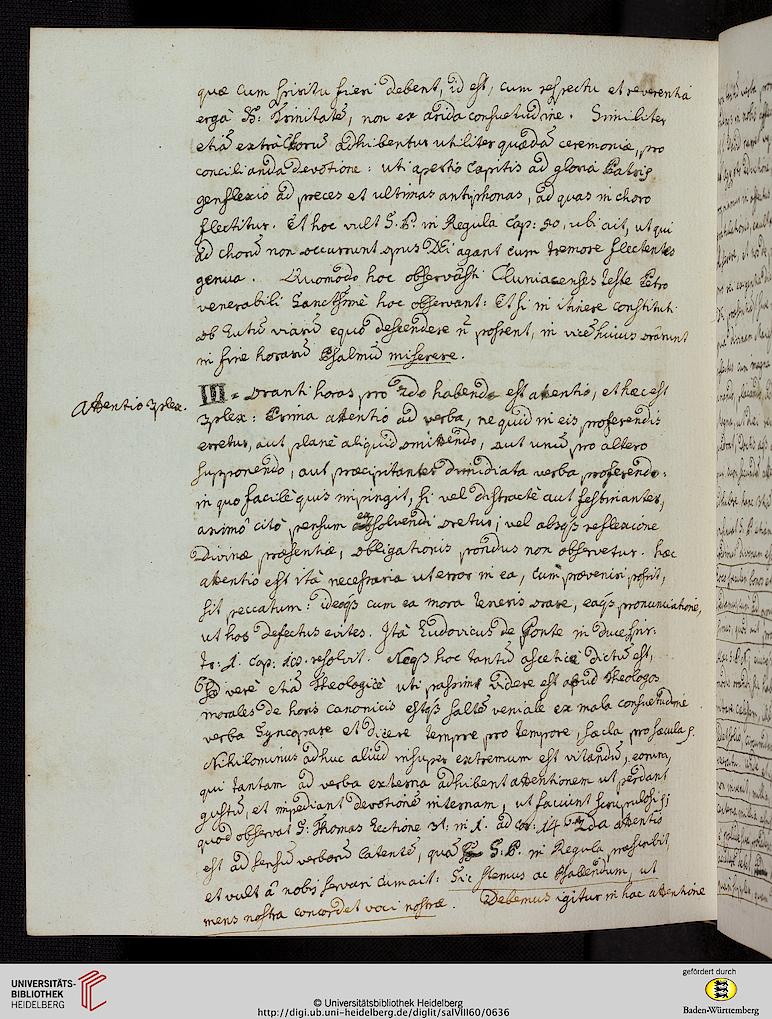 quæ cum spiritu fieri debent, id est, cum respectu et reverentia
ergà SS: Trinitatē, non ex arida consuetudine. Similiter
etiā extrà Chorū adhibentur utiliter quædā ceremoniæ, pro
concilianda devotione: uti apertio capitis ad gloria Patris
genuflexio ad preces et ultimas antiphonas, ad quas in choro
flectitur. Et hoc vult S. P. in Regula Cap: 50, ubi ait, ut qui
ad chorū non occurrunt opus Dei agant cum tremore flectentes
genua. Quomodo hoc observāsti Cluniacenses teste Petro
venerabili Sanctissimè hoc observant: Et si in itinere constituti
ob lutū viarū equo descendere n̄ possent, in vicē huius orarunt
in fine horarū Psalmū miserere.
Attentio 3plex.
III = oranti horas pro 2do habenda est attentio, et hæc est
3plex: Prima attentio ad verba, ne quid in eis proferendis
erretur, aut planè aliquid omittendo, aut unū pro altero
supponendo, aut præcipitanter dimidiata verba proferendo:
in quo facilè quis impingit, si vel distractè aut festinanter,
animô citò pensum exsolvendi oretur; vel absqȝ reflexione
Divinæ præsentiæ, obligationis pondus non observetur. hæc
attentio est ità necessaria ut error in ea, cum præveniri possit,
sit peccatum: ideoqȝ cum ea mora teneris orare, eaqȝ pronunciatione,
ut hos defectus evites. Ità Ludovicus de Ponte in Duce spir.
tr: 1. cap: resolvit. Neqȝ hoc tantū asceticè dictū est,
sed verè etiā theologicè uti passim videre est apud theologos
morales de horis canonicis estqȝ saltē veniale ex mala consuetudine
verba syncopare et dicere tempre pro tempore, sæcla pro sæcula.
Nihilominus adhuc aliud insuper extremum est vitandū, eorum,
qui tantam ad verba externa adhibent attentionem ut perdant
gustū, et impediant devotionē internam, ut faciunt scrupulosi
quod observat S: Thomas Lectione 3t: in 1. ad cor: 14 2da attentio
est ad sensū verborū latentē, quā S. P. in Regula præscribit,
et vult â nobis servari cum ait: Sic stemus ac Psallendum, ut
mens nostra concordet voci nostræ. Debemus igitur in hac attentione
UNIVERSITÄTS-
BIBLIOTHEK
HEIDELBERG
© Universitätsbibliothek Heidelberg
http://digi.ub.uni-heidelberg.de/diglit/salVIII60/0636
gefördert durch
Baden-Württemberg